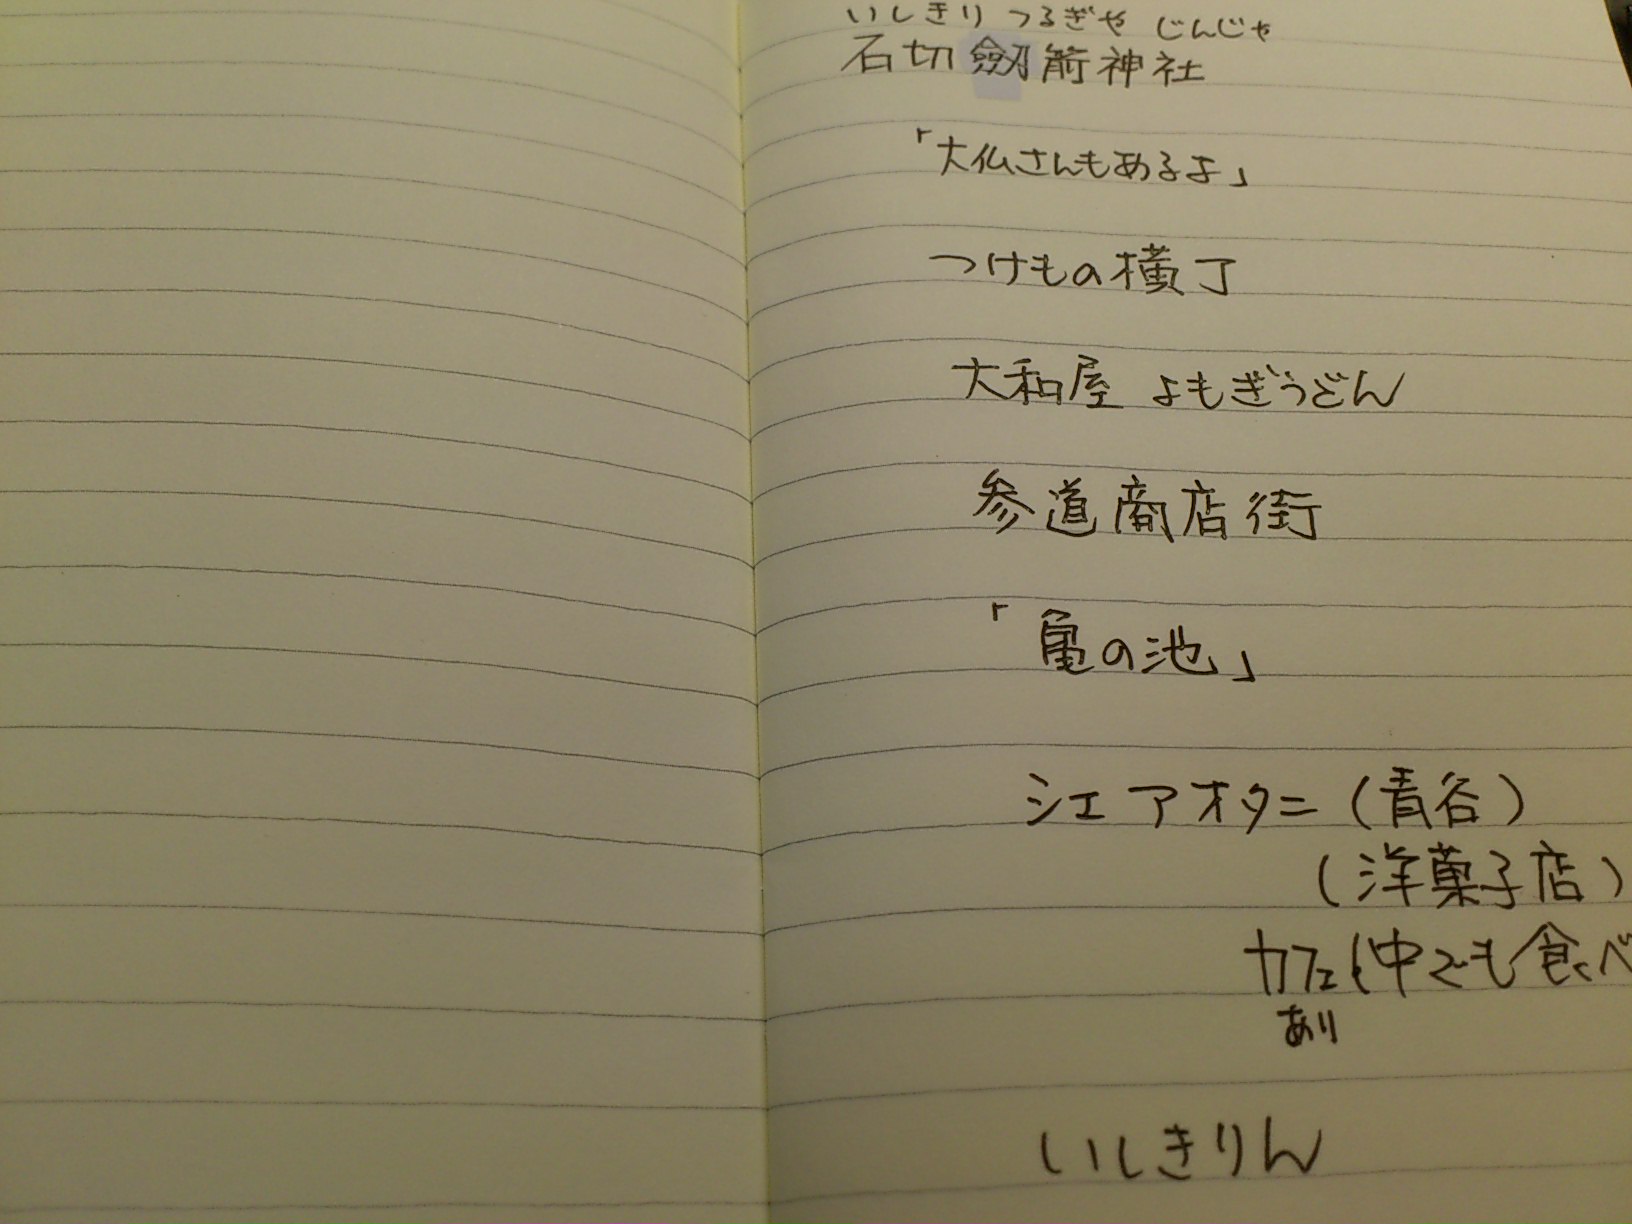 いしきり つるぎや じんじゃ
石切劔箭神社
「大仏さんもあるよ」
つけもの横丁
大和屋 よもぎうどん
参道商店街
「亀の池」
シェ アオタニ(青谷)
(洋菓子店)
カフェ(中でも食べ
あり
いしきりん